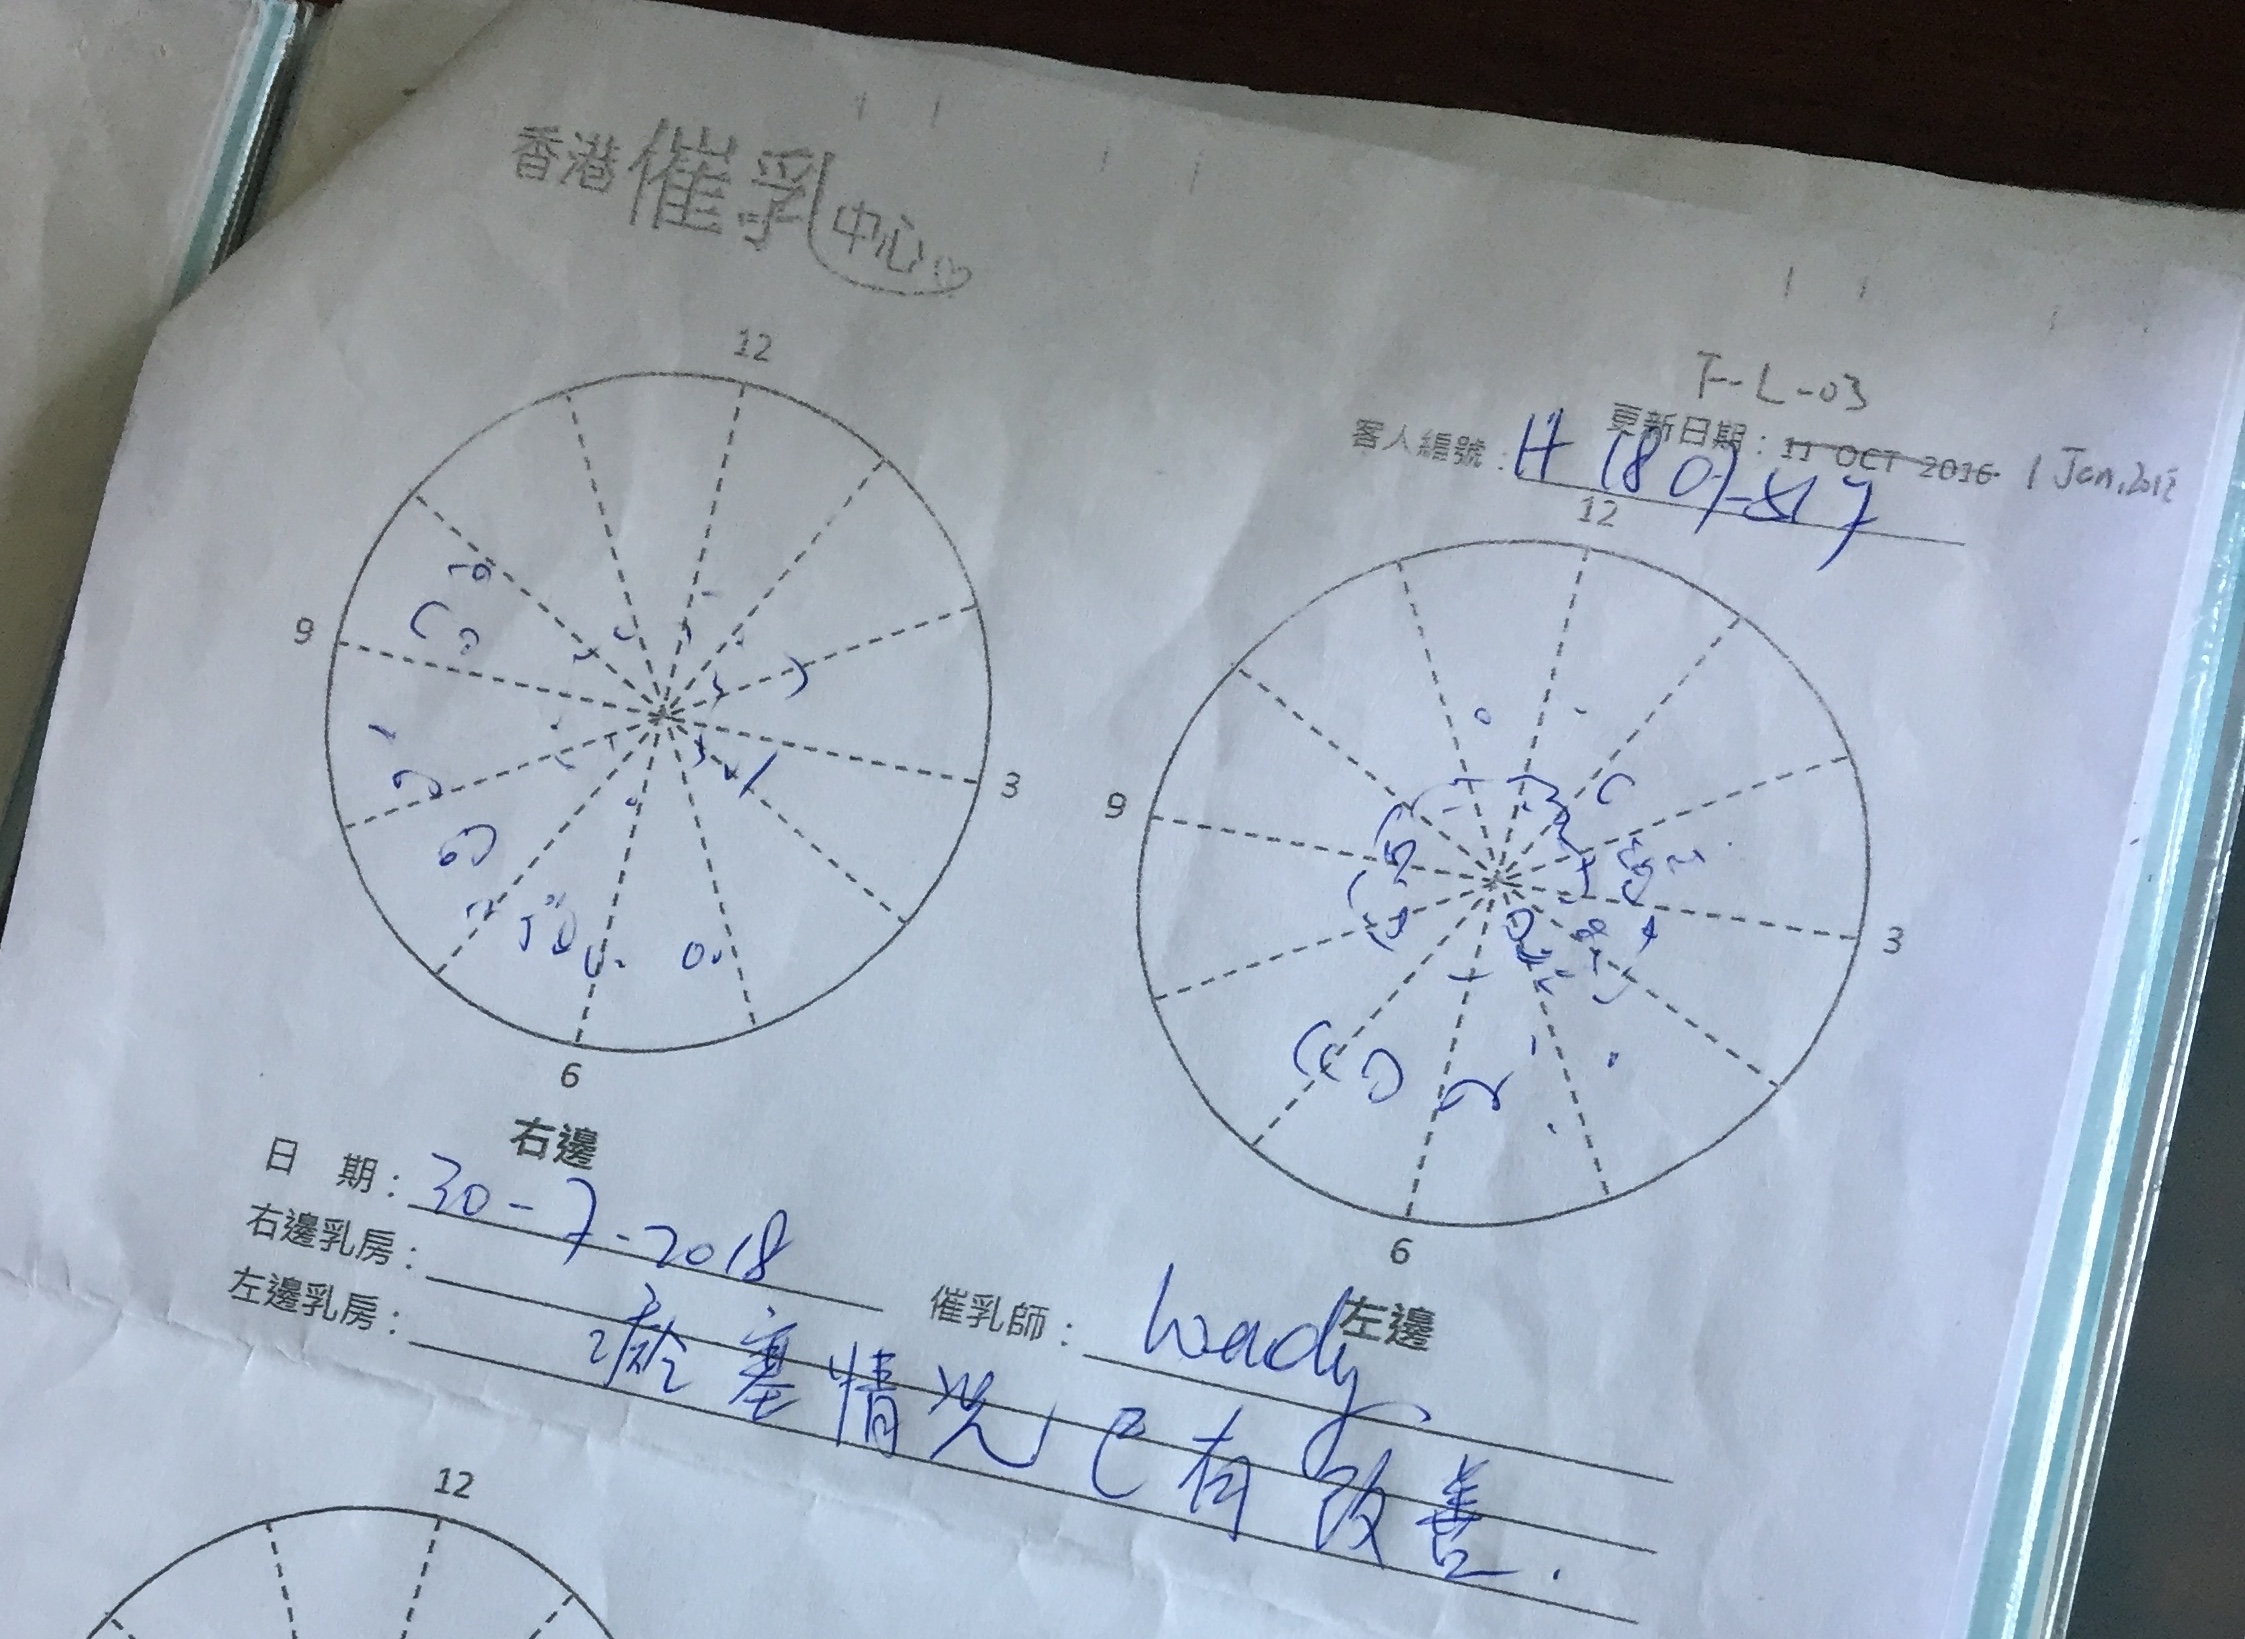 香港催乳中心
F-L-03
更新日期：11 OCT 2016 1 Jan, 201
客人編號：H 1807-
12
9
3
6
右邊
12
9
3
6
左邊
日 期：30-7-2018 催乳師：
右邊乳房：
左邊乳房：
瘀塞情況已有改善.
12